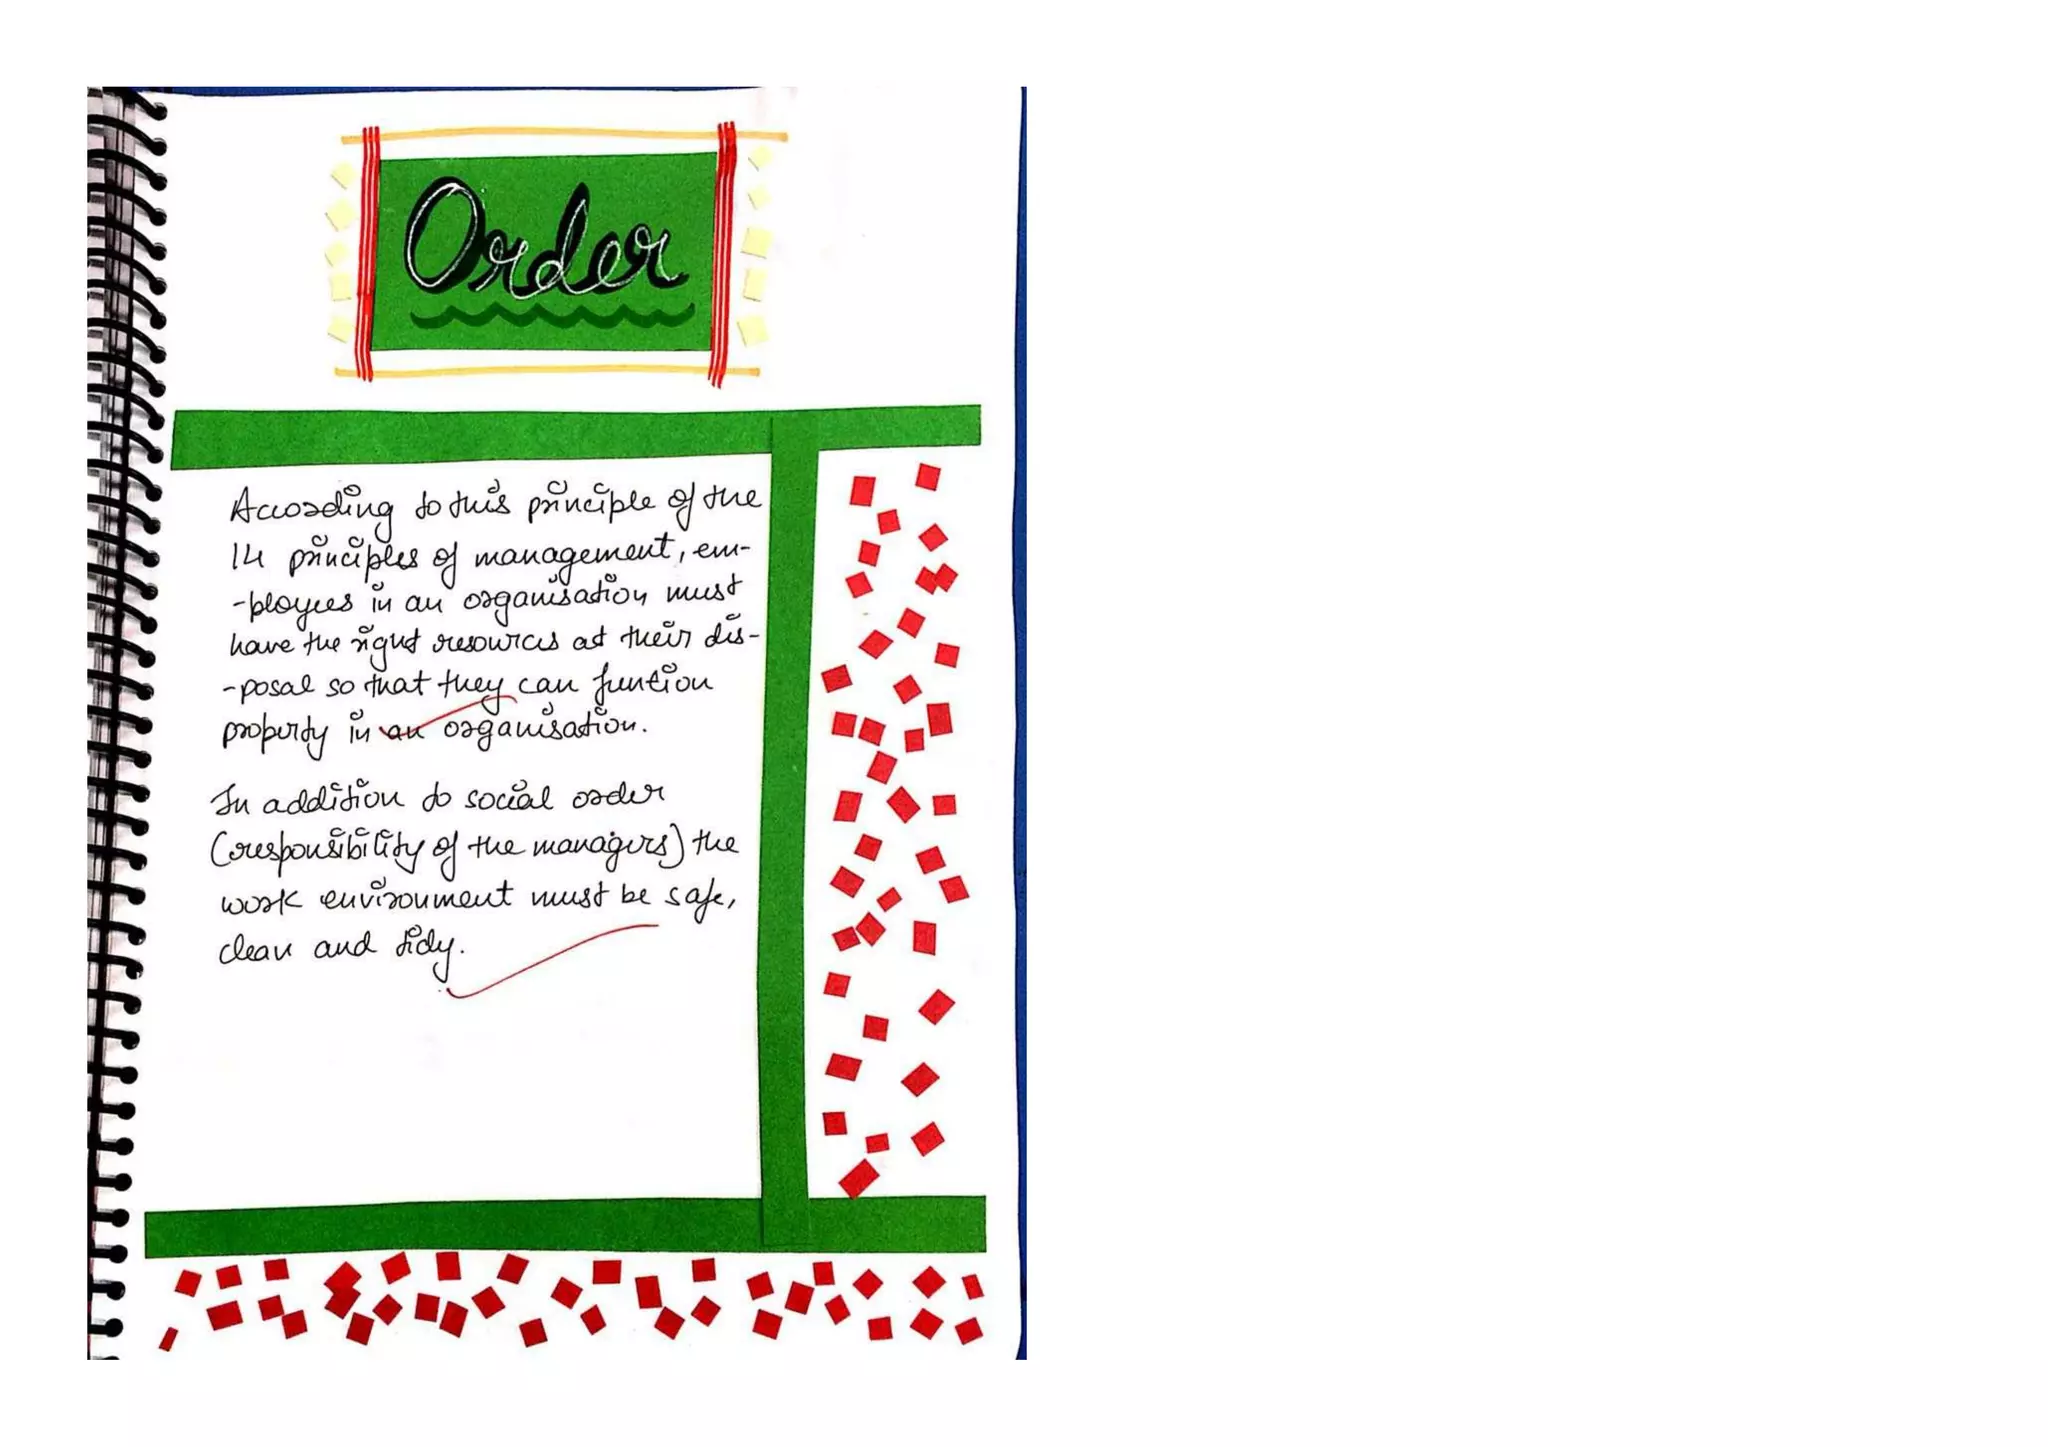 Order
According to this principle of the
14 principles of management, em-
-ployees in an organisation must
have the right resources at their dis-
-posal so that they can funtion
properly in an organisation.
In addition to social order
(responsibility of the managers) the
work environment must be safe,
clean and tidy.